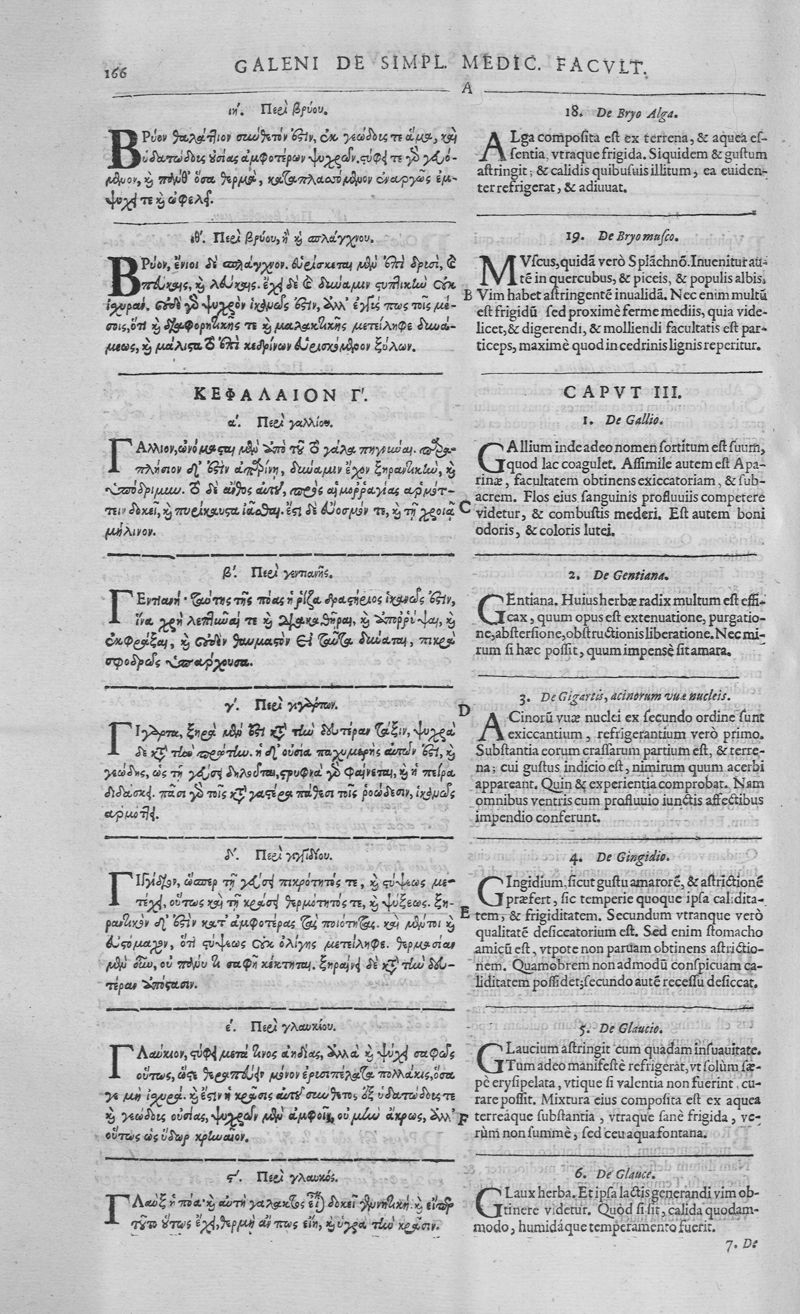 166
GALENI DE SIMPL. MEDIC. FACVLT.
A
ιη΄. Περὶ βρύου.
ΒΡύον θαλάττιον σύνθετόν ἐστιν, ἐκ γεώδους τε ἅμα, καὶ
ὑδατώδους οὐσίας ἀμφοτέρων ψυχρῶν. στύφει τε γὸ γευό-
μενον, ϗ πάνθ' ὅσα θερμὰ, καταπλασσόμενον ἐναργῶς ἐμ-
ψύχει τε ϗ ὠφελεῖ.
ιθ΄. Περὶ βρύου, ἢ ϗ σπλάγχνου.
ΒΡύον, ἔνιοι δὲ σπλάγχνον. εὑρίσκεται μὲν ἐπὶ δρυσὶ, ϗ
πεύκαις, ϗ λεύκαις. ἔχει δὲ ϗ δύναμιν στυπτικὴν οὐκ
ἰσχυράν. οὐδὲ γὸ ψυχρὸν ἱκανῶς ἐστιν, ἀλλ' ἐγγύς πως τοῖς μέ-
σοις, ὅτι ϗ διαφορητικῆς τε ϗ μαλακτικῆς μετείληφε δυνά-
μεως, ϗ μάλιστα τὸ ἐπὶ κεδρίνων εὑρισκόμενον ξύλων.
ΚΕΦΑΛΑΙΟΝ Γ΄.
α΄. Περὶ γαλλίου.
ΓΑλλιον, ὠνόμασται μὲν ἀπὸ τοῦ τὸ γάλα πηγνύναι. παρα-
πλήσιον δ' ἐστὶν ἀπαρίνῃ, δύναμιν ἔχον ξηραντικὴν, ϗ
ὑπόδριμυν. τὸ δὲ ἄνθος αὐτοῦ, πρὸς αἱμορραγίας ἁρμότ-
τειν δοκεῖ, ϗ πυρίκαυστα ἰᾶσθαι. ἔστι δὲ εὔοσμόν τε, ϗ τῇ χροιᾷ
μήλινον.
β΄. Περὶ γεντιανῆς.
ΓΕντιανὴ· ταύτης τῆς πόας ἡ ῥίζα δραστήριος ἱκανῶς ἐστιν,
ἵνα χρὴ λεπτῦναί τε ϗ διακαθῆραι, ϗ ἀπορρύψαι, ϗ
ἐκφράξαι, ϗ οὐδὲν θαυμαστὸν εἰ ταῦτα δύναται, πικρὰ
σφοδρῶς ὑπάρχουσα.
γ΄. Περὶ γιγάρτων.
ΓΙγαρτα, ξηρὰ μέν ἐστι κατὰ τὴν δευτέραν τάξιν, ψυχρὰ
δὲ κατὰ τὴν πρώτην. ἡ δ' οὐσία παχυμερὴς αὐτῶν ἐστι, ϗ
γεώδης, ὡς τῇ γεύσει δηλοῦται, στρυφνὰ γὸ φαίνεται, ϗ ἡ πεῖρα
διδάσκει. πᾶσι γὸ τοῖς κατὰ γαστέρα πάθεσι τοῖς ῥοώδεσιν, ἱκανῶς
ἁρμόττει.
δ΄. Περὶ γιγγιδίου.
ΓΙγγίδιον, ὥσπερ τῇ γεύσει πικρότητός τε, ϗ στύψεως με-
τέχει, οὕτως καὶ τῇ κράσει θερμότητός τε, ϗ ψύξεως. ξη-
ραντικὸν δ' ἐστὶν κατ' ἀμφοτέρας τὰς ποιότητας. καὶ μέντοι ϗ
εὐστόμαχον, ὅτι στύψεως οὐκ ὀλίγης μετείληφε. θερμασίαν
μὲν οὖν, οὐ πάνυ τι σαφῆ κέκτηται. ξηραίνει δὲ κατὰ τὴν δευ-
τέραν ἀπόστασιν.
ε΄. Περὶ γλαυκίου.
ΓΛαύκιον, στύφει μετά τινος ἀηδίας, ἀλλὰ ϗ ψύχει σαφῶς
οὕτως, ὥστε θεραπεύειν μόνον ἐρισιπέλατα πολλάκις, ὅσα
γε μὴ ἰσχυρά. ϗ ἔστιν ἡ κρᾶσις αὐτοῦ σύνθετος ἐξ ὑδατώδους τε
ϗ γεώδους οὐσίας, ψυχρῶν μὲν ἀμφοῖν, οὐ μὴν ἄκρως, ἀλλ'
οὕτως ὡς ὕδωρ κρηναῖον.
ϛ΄. Περὶ γλαυκός.
ΓΛαὺξ ἡ πόα· ϗ αὐτὴ γάλακτος εἶναι δοκεῖ γεννητική· ϗ εἴπερ
τοῦτο οὕτως ἔχει, θερμὴ ἄν πως εἴη, ϗ ὑγρὰ τὴν κρᾶσιν.
18. De Bryo Alga.
ALga composita est ex terrena, & aquea es-
sentia, vtraque frigida. Siquidem & gustum
astringit; & calidis quibusuis illitum, ea euiden-
ter refrigerat, & adiuuat.
19. De Bryo musco.
MVscus, quidã verò Splãchnõ. Inuenitur au-
tẽ in quercubus, & piceis, & populis albis.
B Vim habet astringentẽ inualidã. Nec enim multũ
est frigidũ sed proximè ferme mediis, quia vide-
licet, & digerendi, & molliendi facultatis est par-
ticeps, maximè quod in cedrinis lignis reperitur.
CAPVT III.
1. De Gallio.
GAllium inde adeo nomen sortitum est suum,
quod lac coagulet. Assimile autem est Apa-
rinæ, facultatem obtinens exiccatoriam, & sub-
acrem. Flos eius sanguinis profluuiis competere
C videtur, & combustis mederi. Est autem boni
odoris, & coloris lutei.
2. De Gentiana.
GEntiana. Huius herbæ radix multum est effi-
cax, quum opus est extenuatione, purgatio-
ne, abstersione, obstructionis liberatione. Nec mi-
rum si hæc possit, quum impensè sit amara.
D
3. De Gigartis, acinorum vuæ nucleis.
ACinorũ vuæ nuclei ex secundo ordine sunt
exiccantium, refrigerantium verò primo.
Substantia eorum crassarum partium est, & terre-
na; cui gustus indicio est, nimirum quum acerbi
appareant. Quin & experientia comprobat. Nam
omnibus ventris cum profluuio iunctis affectibus
impendio conferunt.
4. De Gingidio.
GIngidium, sicut gustu amarorẽ, & astrictionẽ
præfert, sic temperie quoque ipsa calidita-
E tem, & frigiditatem. Secundum vtranque verò
qualitatẽ desiccatorium est. Sed enim stomacho
amicũ est, vtpote non paruam obtinens astrictio-
nem. Quamobrem non admodũ conspicuam ca-
liditatem possidet; secundo autẽ recessu desiccat.
5. De Glaucio.
GLaucium astringit cum quadam insuauitate.
Tum adeo manifestè refrigerat, vt solùm sæ-
pè erysipelata, vtique si valentia non fuerint, cu-
rare possit. Mixtura eius composita est ex aquea
F terreáque substantia, vtraque sanè frigida, ve-
rùm non summè, sed ceu aqua fontana.
6. De Glauce.
GLaux herba. Et ipsa lactis generandi vim ob-
tinere videtur. Quòd si sit, calida quodam-
modo, humidáque temperamento fuerit.
7. De